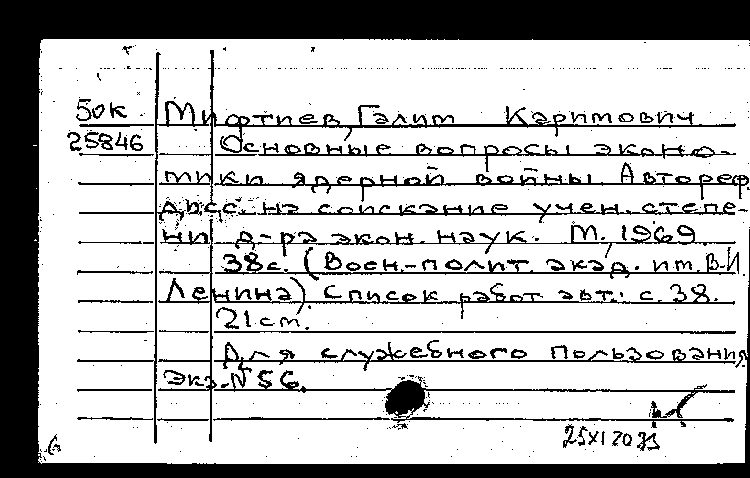 50к Мифтиев, Галит Каримович
25846 Основные вопросы эконо-
мики ядерной войны. Автореф.
дисс. на соискание учен. степе-
ни д-ра экон. наук. М., 1969.
38с. (Воен.-полит. акад. им. В.И.
Ленина). Список работ авт.: с. 38.
21 см.
Для служебного пользования
Экз. № 56.